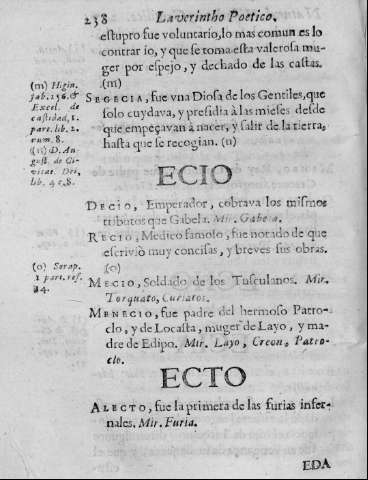 238 Laverintho Poetico.
estupro fue voluntario, lo mas comun es lo
contrario, y que se toma esta valerosa mu-
ger por espejo, y dechado de las castas.
(m)
(m) Higin.
fab. 256. &
Excel. de
castidad, 1.
part. lib. 2.
num. 8.
SEGECIA, fue vna Diosa de los Gentiles, que
solo cuydava, y presidia à las mieses desde
que empeçavan à nacer, y salir de la tierra,
hasta que se recogian. (n)
(n) D. Au
gust. de Ci-
vitat. Dei,
lib. 4 c. 8.
ECIO
DECIO, Emperador, cobrava los mismos
tributos que Gabela. Mir. Gabela.
RECIO, Medico famoso, fue notado de que
escriviò muy concisas, y breves sus obras.
(o)
(o) Serap.
1 part. ref.
24.
MECIO, Soldado de los Tusculanos. Mir.
Torquato, Curiatos.
MENECIO, fue padre del hermoso Patro-
clo, y de Locasta, muger de Layo, y ma-
dre de Edipo. Mir. Layo, Creon, Patro-
clo.
ECTO
ALECTO, fue la primera de las furias infer-
nales. Mir. Furia.
EDA